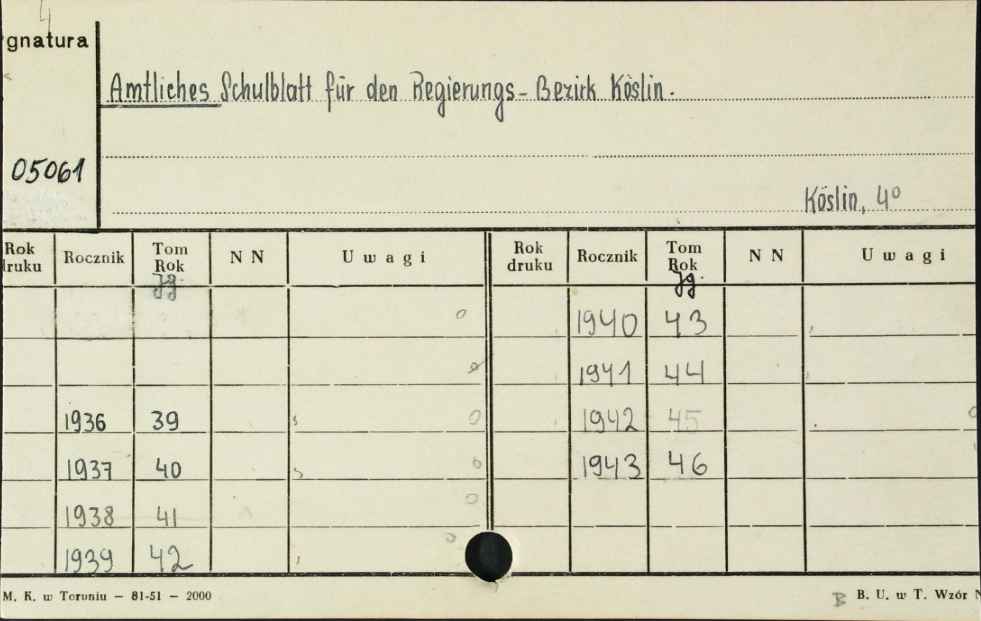 4
gnatura
Amtliches Schulblatt für den Regierungs-Bezirk Köslin.
05061
Köslin, 4º
Rok druku Rocznik Tom Rok Jg. N N Uwagi Rok druku Rocznik Tom Rok Jg. N N Uwagi
1940 43
1941 44
1936 39 1942 45
1937 40 1943 46
1938 41
1939 42
M. K. w Toruniu — 81-51 — 2000
B B. U. w T. Wzór N